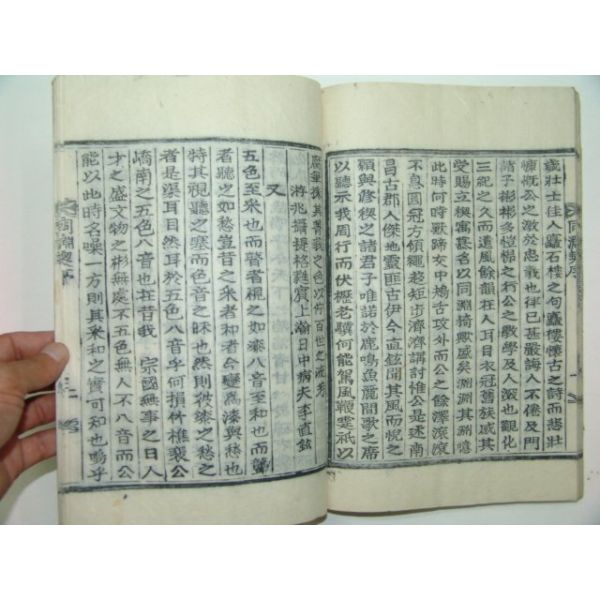 同淵契序
歲壯士佳人矗石樓之句矗樓懷古之詩而悲壯
慷慨公之激於忠義也律已甚嚴誨人不倦及門
諸子彬彬多愷悌之行公之敎學及人深也觀化
三紀之久而遺風餘韻在人耳目衣冠舊族咸其
受賜立稧寓慕名以同淵猗歟戚矣淵淵其淵噫
此時何時獸歸女中鴂古攻外而公之餘澤滾滾
不息圓冠方領繩趨短步濟濟講討惟公是述南
昌古郡人傑地靈匪伊今直鉉聞其風而悅之
願與修稧之諸君子唯諾於鹿鳴魚麗間歌之席
以聽示我周行而伏櫪老驥何能駕風鞭霆祇以
其菁我之色以佇百世之
游兆攝提格蕤賓上瀚日中病夫李直鉉
又
五色至采也而瞽者視之如漆八音至和也而聾
者聽之如愁豈昔之采者和者今變爲漆與愁也
特其視聽之塞而色音之昧也然則彼漆之愁之
者是渠耳目然耳於五色八音乎何損仵樵裴公
嶠南之五色八音也在昔我 宗國無事之日人
才之盛文物之彬無處不五色無人不八音而公
能以此時名噪一方則其采和之實可知也嗚乎
同淵契序